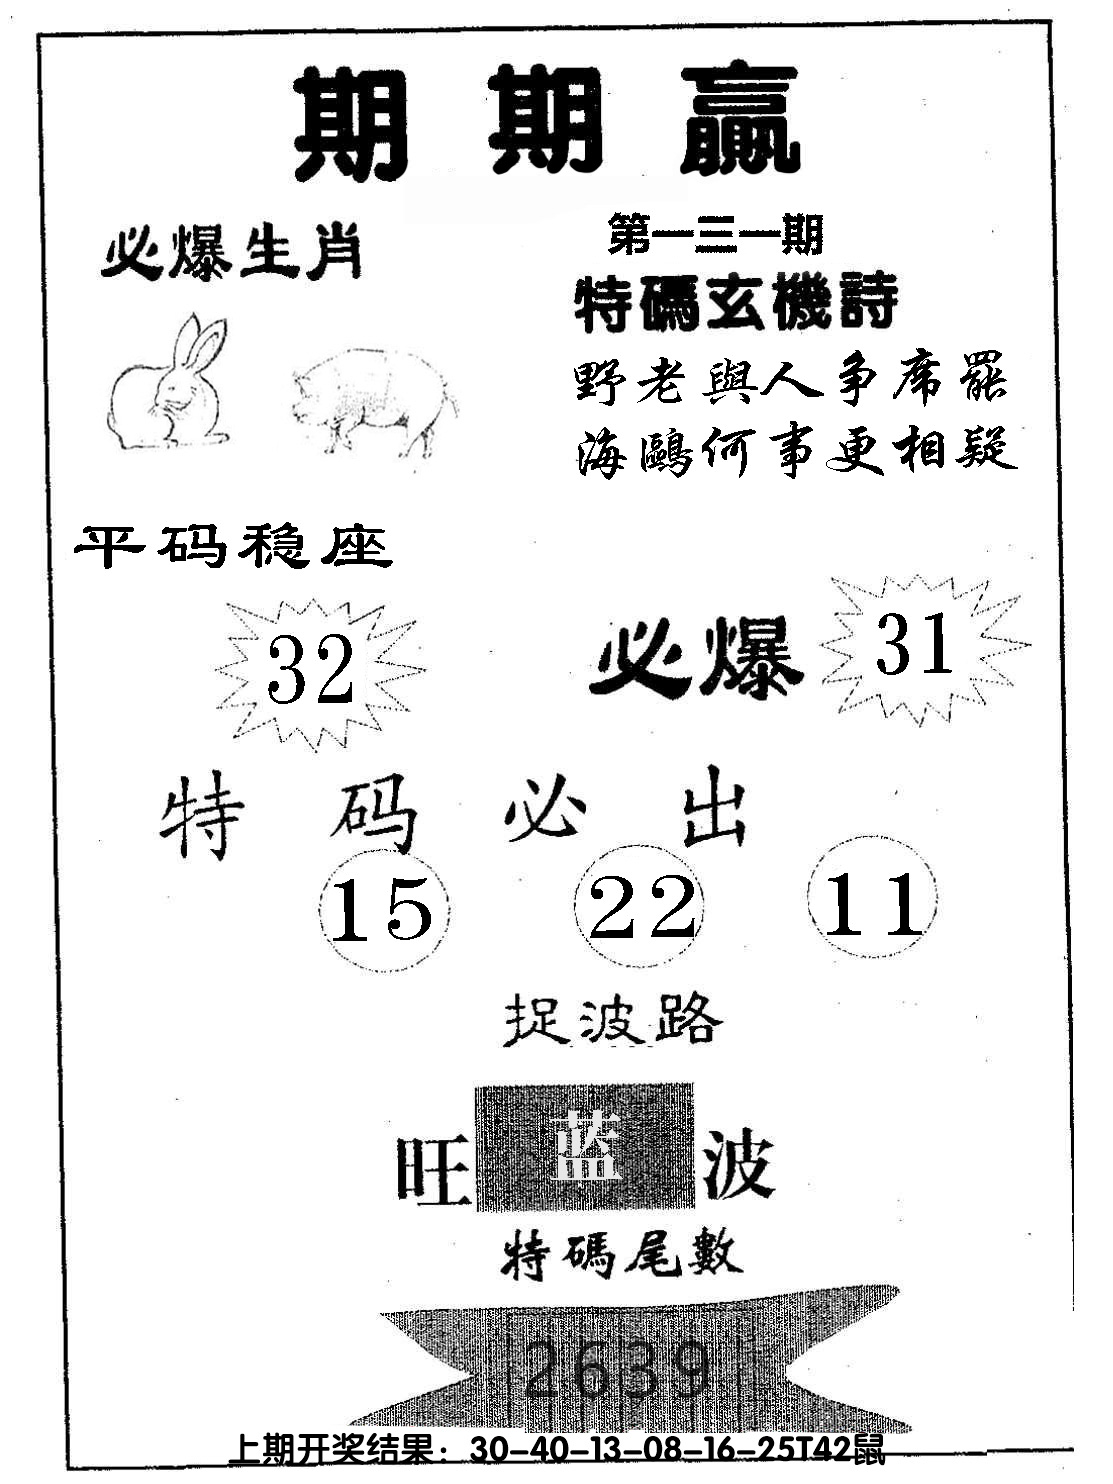 期期赢
必爆生肖
第一三一期
特碼玄機詩
野老與人争席罷
海鷗何事更相疑
平码稳座
32
必爆 31
特码必出
15 22 11
捉波路
旺 蓝 波
特碼尾數
2639
上期开奖结果：30-40-13-08-16-25T42鼠